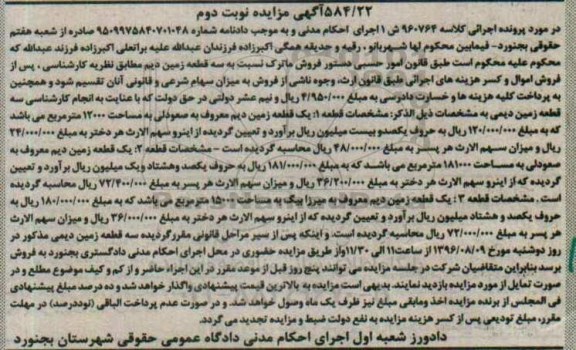 ۵۸۴/۲۲آگهی مزایده نوبت دوم
در مورد پرونده اجرائی کلاسه ۹۶۰۷۶۴ ش ۱ اجرای احکام مدنی و به موجب دادنامه شماره ۹۵۰۹۹۷۵۸۴۰۷۰۱۰۴۸ صادره از شعبه هفتم
حقوقی بجنورد- فیمابین محکوم لها شهربانو ، رقیه و حدیقه همگی اکبرزاده فرزندان عبدالله علیه براتعلی اکبرزاده فرزند عبدالله که
محکوم علیه محکوم است طبق قانون امور حسبی دستور فروش ماترک نسبت به سه قطعه زمین دیم مطابق نظریه کارشناسی ، پس از
فروش اموال و کسر هزینه های اجرائی طبق قانون ارث، وجوه ناشی از فروش به میزان سهام شرعی و قانونی آنان تقسیم شود و همچنین
به پرداخت کلیه هزینه ها و خسارت دادرسی به مبلغ ۴/۹۵۰/۰۰۰ ریال و نیم عشر دولتی در حق دولت که با عنایت به انجام کارشناسی سه
قطعه زمین دیمی به مشخصات ذیل الذکر: مشخصات قطعه ۱: یک قطعه زمین دیم معروف به صعودلی به مساحت ۱۲۰۰۰ مترمربع می باشد
که به مبلغ ۱۲۰/۰۰۰/۰۰۰ ریال به حروف یکصدو بیست میلیون ریال برآورد و تعیین گردیده از اینرو سهم الارث هر دختر به مبلغ ۲۴/۰۰۰/۰۰۰
ریال و میزان سهم الارث هر پسر به مبلغ ۴۸/۰۰۰/۰۰۰ ریال محاسبه گردیده است - مشخصات قطعه ۲: یک قطعه زمین دیم معروف به
صعودلی به مساحت ۱۸۱۰۰۰ مترمربع می باشد که به مبلغ ۱۸۱/۰۰۰/۰۰۰ ریال به حروف یکصد وهشتاد ویک میلیون ریال برآورد و تعیین
گردیده که از اینرو سهم الارث هر دختر به مبلغ ۳۶/۲۰۰/۰۰۰ ریال و میزان سهم الارث هر پسر به مبلغ ۷۲/۴۰۰/۰۰۰ ریال محاسبه گردیده
است . مشخصات قطعه ۳ : یک قطعه زمین دیم معروف به میرزا بیگ به مساحت ۱۵۰۰۰ مترمربع می باشد که به مبلغ ۱۸۰/۰۰۰/۰۰۰ ریال به
حروف یکصد و هشتاد میلیون ریال برآورد و تعیین گردیده که از اینرو سهم الارث هر دختر به مبلغ ۳۶/۰۰۰/۰۰۰ ریال و میزان سهم الارث
هر پسر به مبلغ ۷۲/۰۰۰/۰۰۰ ریال محاسبه گردیده است. و اینکه پس از سیر مراحل قانونی مقرر گردیده سه قطعه زمین دیمی مذکور در
روز دوشنبه مورخ ۱۳۹۶/۰۸/۰۹ از ساعت۱۱ الی ۱۱/۳۰واز طریق مزایده حضوری در محل اجرای احکام مدنی دادگستری بجنورد به فروش
برسد بنابراین متقاضیان شرکت در جلسه مزایده می توانند پنج روز قبل از موعد مقرر در این اجراء حاضر و از کم و کیف موضوع مطلع و در
صورت تمایل از مورد مزایده بازدید نمایند. بدیهی است مزایده به بالاترین قیمت پیشنهادی واگذار خواهد شد و ده درصد مبلغ پیشنهادی
فی المجلس از برنده مزایده اخذ ومابقی مبلغ نیز ظرف یک ماه وصول خواهد شد. و در صورت عدم پرداخت الباقی (نوددرصد) در مهلت
مقرر، مبلغ تودیعی پس از کسر هزینه مزایده به نفع دولت ضبط و مزایده تجدید می گردد.
دادورز شعبه اول اجرای احکام مدنی دادگاه عمومی حقوقی شهرستان بجنورد